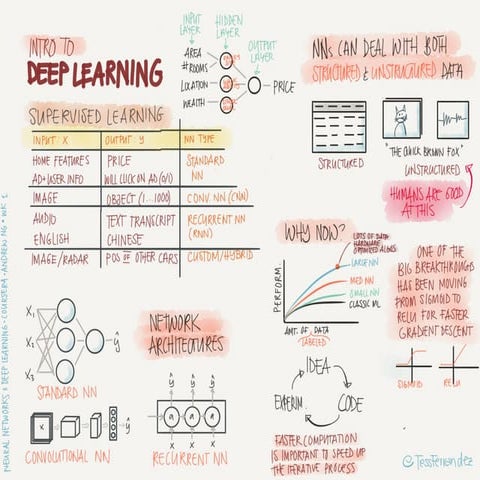 INTRO TO
DEEP LEARNING
INPUT
LAYER
HIDDEN
LAYER
OUTPUT
LAYER
AREA
#ROOMS
LOCATION
WEALTH
PRICE
NNs CAN DEAL WITH BOTH
STRUCTURED & UNSTRUCTURED DATA
STRUCTURED
"THE QUICK BROWN FOX"
UNSTRUCTURED
HUMANS ARE GOOD
AT THIS
SUPERVISED LEARNING
INPUT X OUTPUT Y NN TYPE
HOME FEATURES PRICE STANDARD
AD+USER INFO WILL CLICK ON AD (0/1) NN
IMAGE OBJECT (1...1000) CONV. NN (CNN)
AUDIO TEXT TRANSCRIPT RECURRENT NN
ENGLISH CHINESE (RNN)
IMAGE/RADAR POS OF OTHER CARS CUSTOM/HYBRID
WHY NOW?
LOTS OF DATA
HARDWARE
OPTIMIZED ALGOS
LARGE NN
MED NN
SMALL NN
CLASSIC ML
PERFORM
AMT. OF DATA
LABELED
ONE OF THE
BIG BREAKTHROUGHS
HAS BEEN MOVING
FROM SIGMOID TO
RELU FOR FASTER
GRADIENT DESCENT
SIGMOID RELU
IDEA
CODE
EXPERIM.
FASTER COMPUTATION
IS IMPORTANT TO SPEED UP
THE ITERATIVE PROCESS
NETWORK
ARCHITECTURES
X₁
X₂
X₃
ŷ
STANDARD NN
ŷ
CONVOLUTIONAL NN
ŷ ŷ ŷ
a a a
x x x
RECURRENT NN
NEURAL NETWORKS & DEEP LEARNING - COURSERA - ANDREW NG - WK 1
@TessFernandez